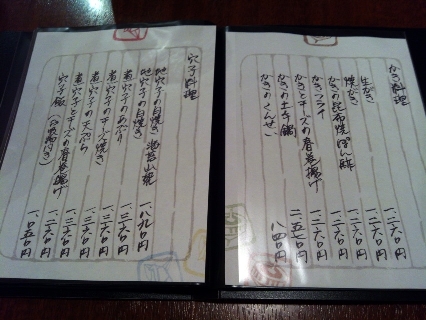 かき料理
生がき 一、二六〇円
焼がき 一、二六〇円
かきの昆布焼ぽん酢 一、二六〇円
かきフライ 一、二六〇円
かきとチーズの春巻揚げ 一、二六〇円
かきの土手鍋 二、五七〇円
かきのくんせい 八四〇円
穴子料理
地穴子の白焼き 一、八九〇円
煮穴子のあぶり 一、二六〇円
煮穴子のチーズ焼き 一、二六〇円
煮穴子の天ぷら 一、二六〇円
穴子とチーズの春巻揚げ 一、二六〇円
穴子飯 一、〇五〇円